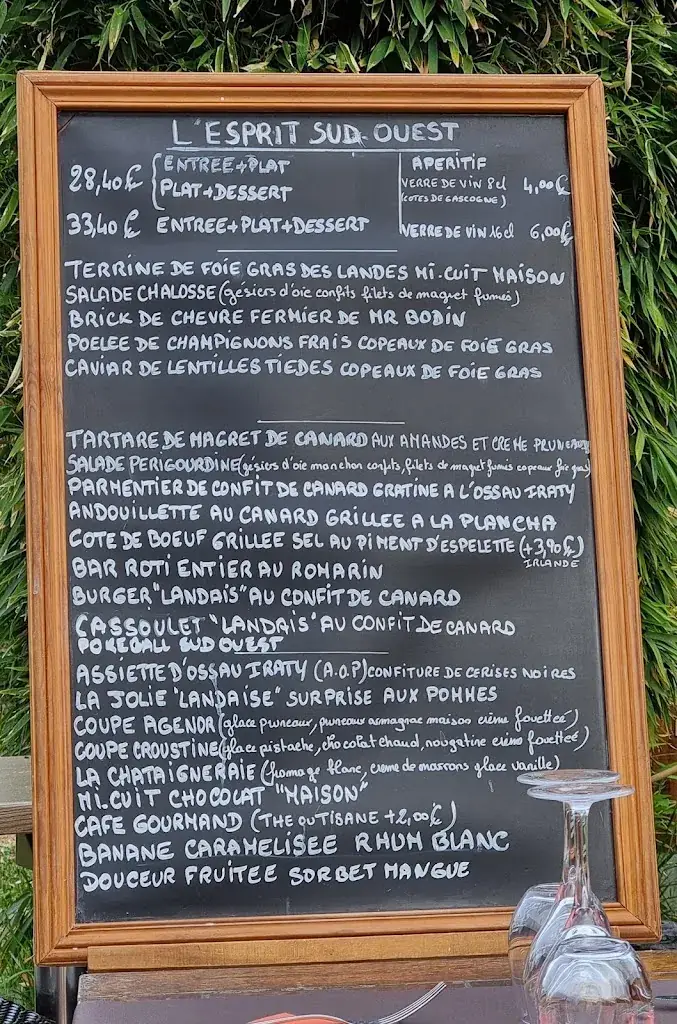 L'ESPRIT SUD-OUEST
28,40€ ENTREE+PLAT
PLAT+DESSERT
33,40€ ENTREE+PLAT+DESSERT
APERITIF
VERRE DE VIN 8cl 4,00€
(COTES DE GASCOGNE)
VERRE DE VIN 16cl 6,00€
TERRINE DE FOIE GRAS DES LANDES MI.CUIT MAISON
SALADE CHALOSSE (gésiers d'oie confits filets de magret fumés)
BRICK DE CHEVRE FERMIER DE MR BODIN
POELEE DE CHAMPIGNONS FRAIS COPEAUX DE FOIE GRAS
CAVIAR DE LENTILLES TIEDES COPEAUX DE FOIE GRAS
TARTARE DE MAGRET DE CANARD AUX AMANDES ET CREME PRUNEAUX
SALADE PERIGOURDINE (gésiers d'oie manchon confits, filets de magret fumés copeaux foie gras)
PARMENTIER DE CONFIT DE CANARD GRATINE A L'OSSAU IRATY
ANDOUILLETTE AU CANARD GRILLEE A LA PLANCHA
COTE DE BOEUF GRILLEE SEL AU PIMENT D'ESPELETTE (+3,90€)
IRLANDE
BAR ROTI ENTIER AU ROMARIN
BURGER "LANDAIS" AU CONFIT DE CANARD
CASSOULET "LANDAIS" AU CONFIT DE CANARD
POKEBALL SUD OUEST
ASSIETTE D'OSSAU IRATY (A.O.P) CONFITURE DE CERISES NOIRES
LA JOLIE "LANDAISE" SURPRISE AUX POMMES
COUPE AGENOR (glace pruneaux, pruneaux armagnac maison crème fouettée)
COUPE CROUSTINE (glace pistache, chocolat chaud, nougatine crème fouettée)
LA CHATAIGNERAIE (fromage blanc, creme de marrons glace vanille)
MI.CUIT CHOCOLAT "MAISON"
CAFE GOURMAND (THE OU TISANE +2,00€)
BANANE CARAMELISEE RHUM BLANC
DOUCEUR FRUITEE SORBET MANGUE